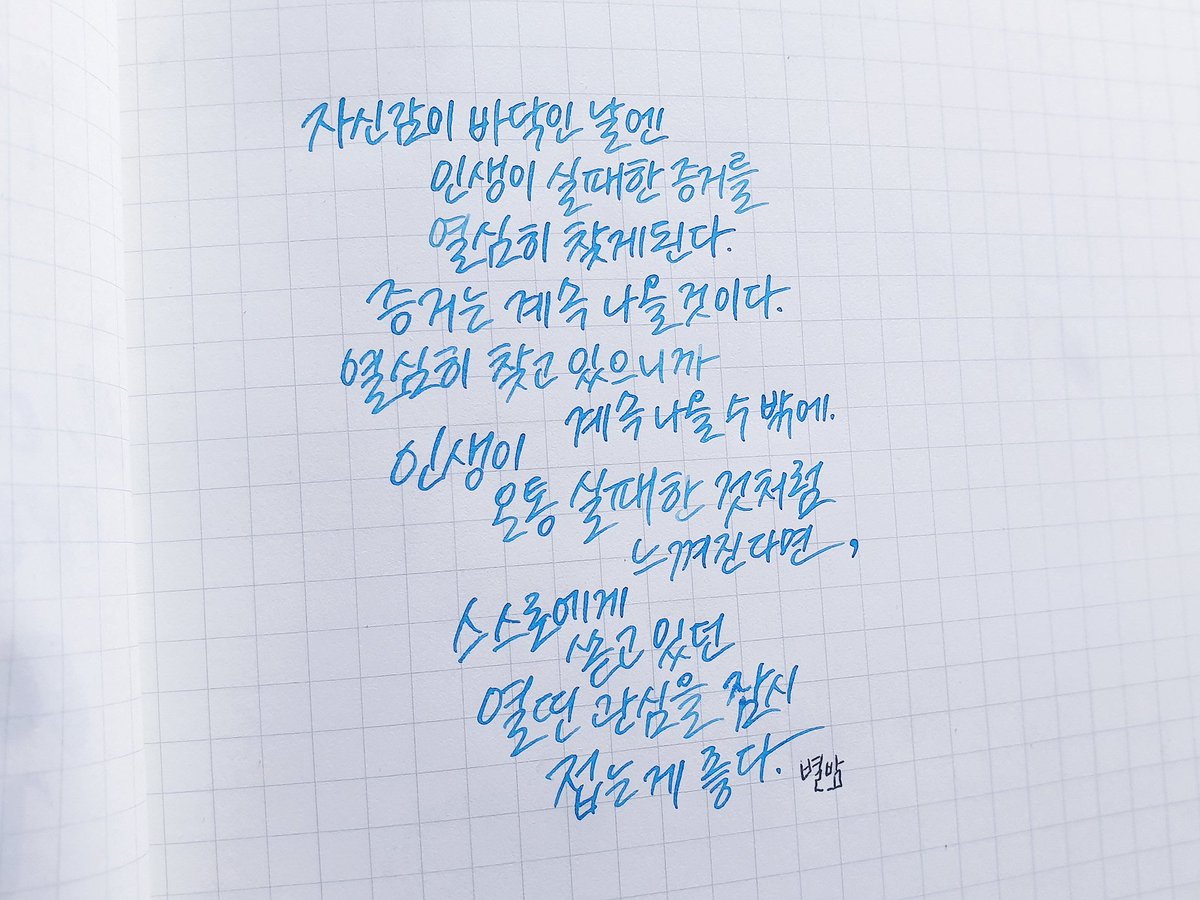 자신감이 바닥인 날엔
인생이 실패한 증거를
열심히 찾게된다.
증거는 계속 나올 것이다.
열심히 찾고 있으니까
계속 나올 수 밖에.
인생이
온통 실패한 것처럼
느껴진다면,
스스로에게
쏟고 있던
열띤 관심을 잠시
접는게 좋다.
별밤